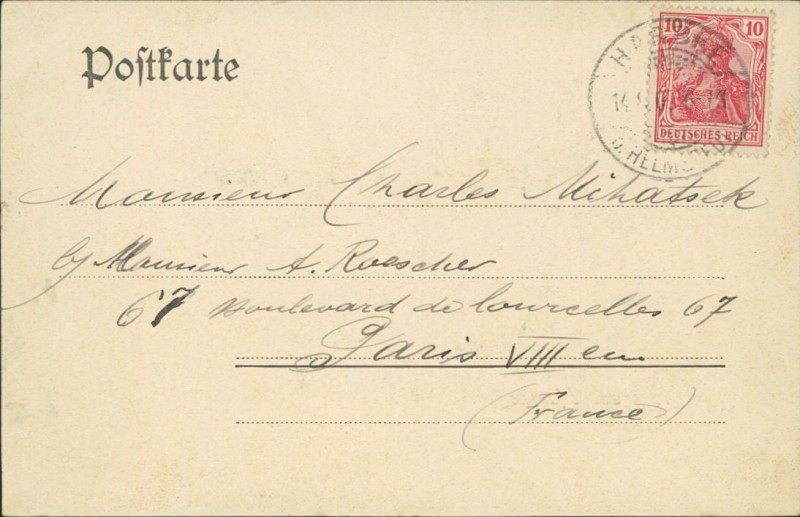 Postkarte
10 10
DEUTSCHES REICH
HELMS
Monsieur Charles Mihatsek
b/ Monsieur A. Roescher
67 Boulevard de Courcelles 67
Paris VIII em
(France)